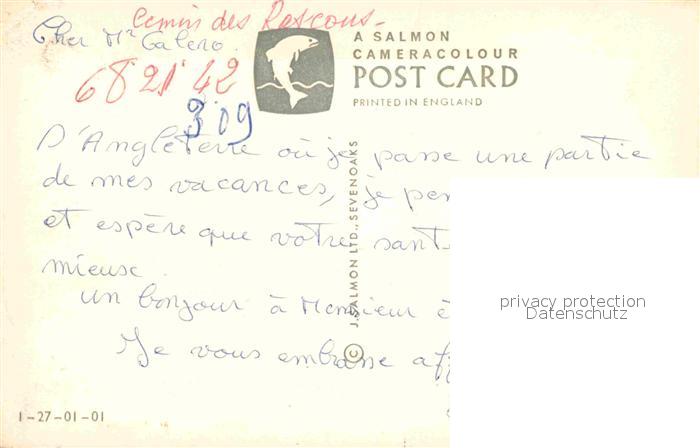 Cemin des Rascous-
Cher Mr Calero.
68 21 42
309
A SALMON
CAMERACOLOUR
POST CARD
PRINTED IN ENGLAND
D'Angleterre où je passe une partie
de mes vacances, je pen
et espère que votre sant
mieux.
un bonjour à Monsieur
Je vous embrasse aff
© J. SALMON LTD., SEVENOAKS
privacy protection
Datenschutz
1-27-01-01